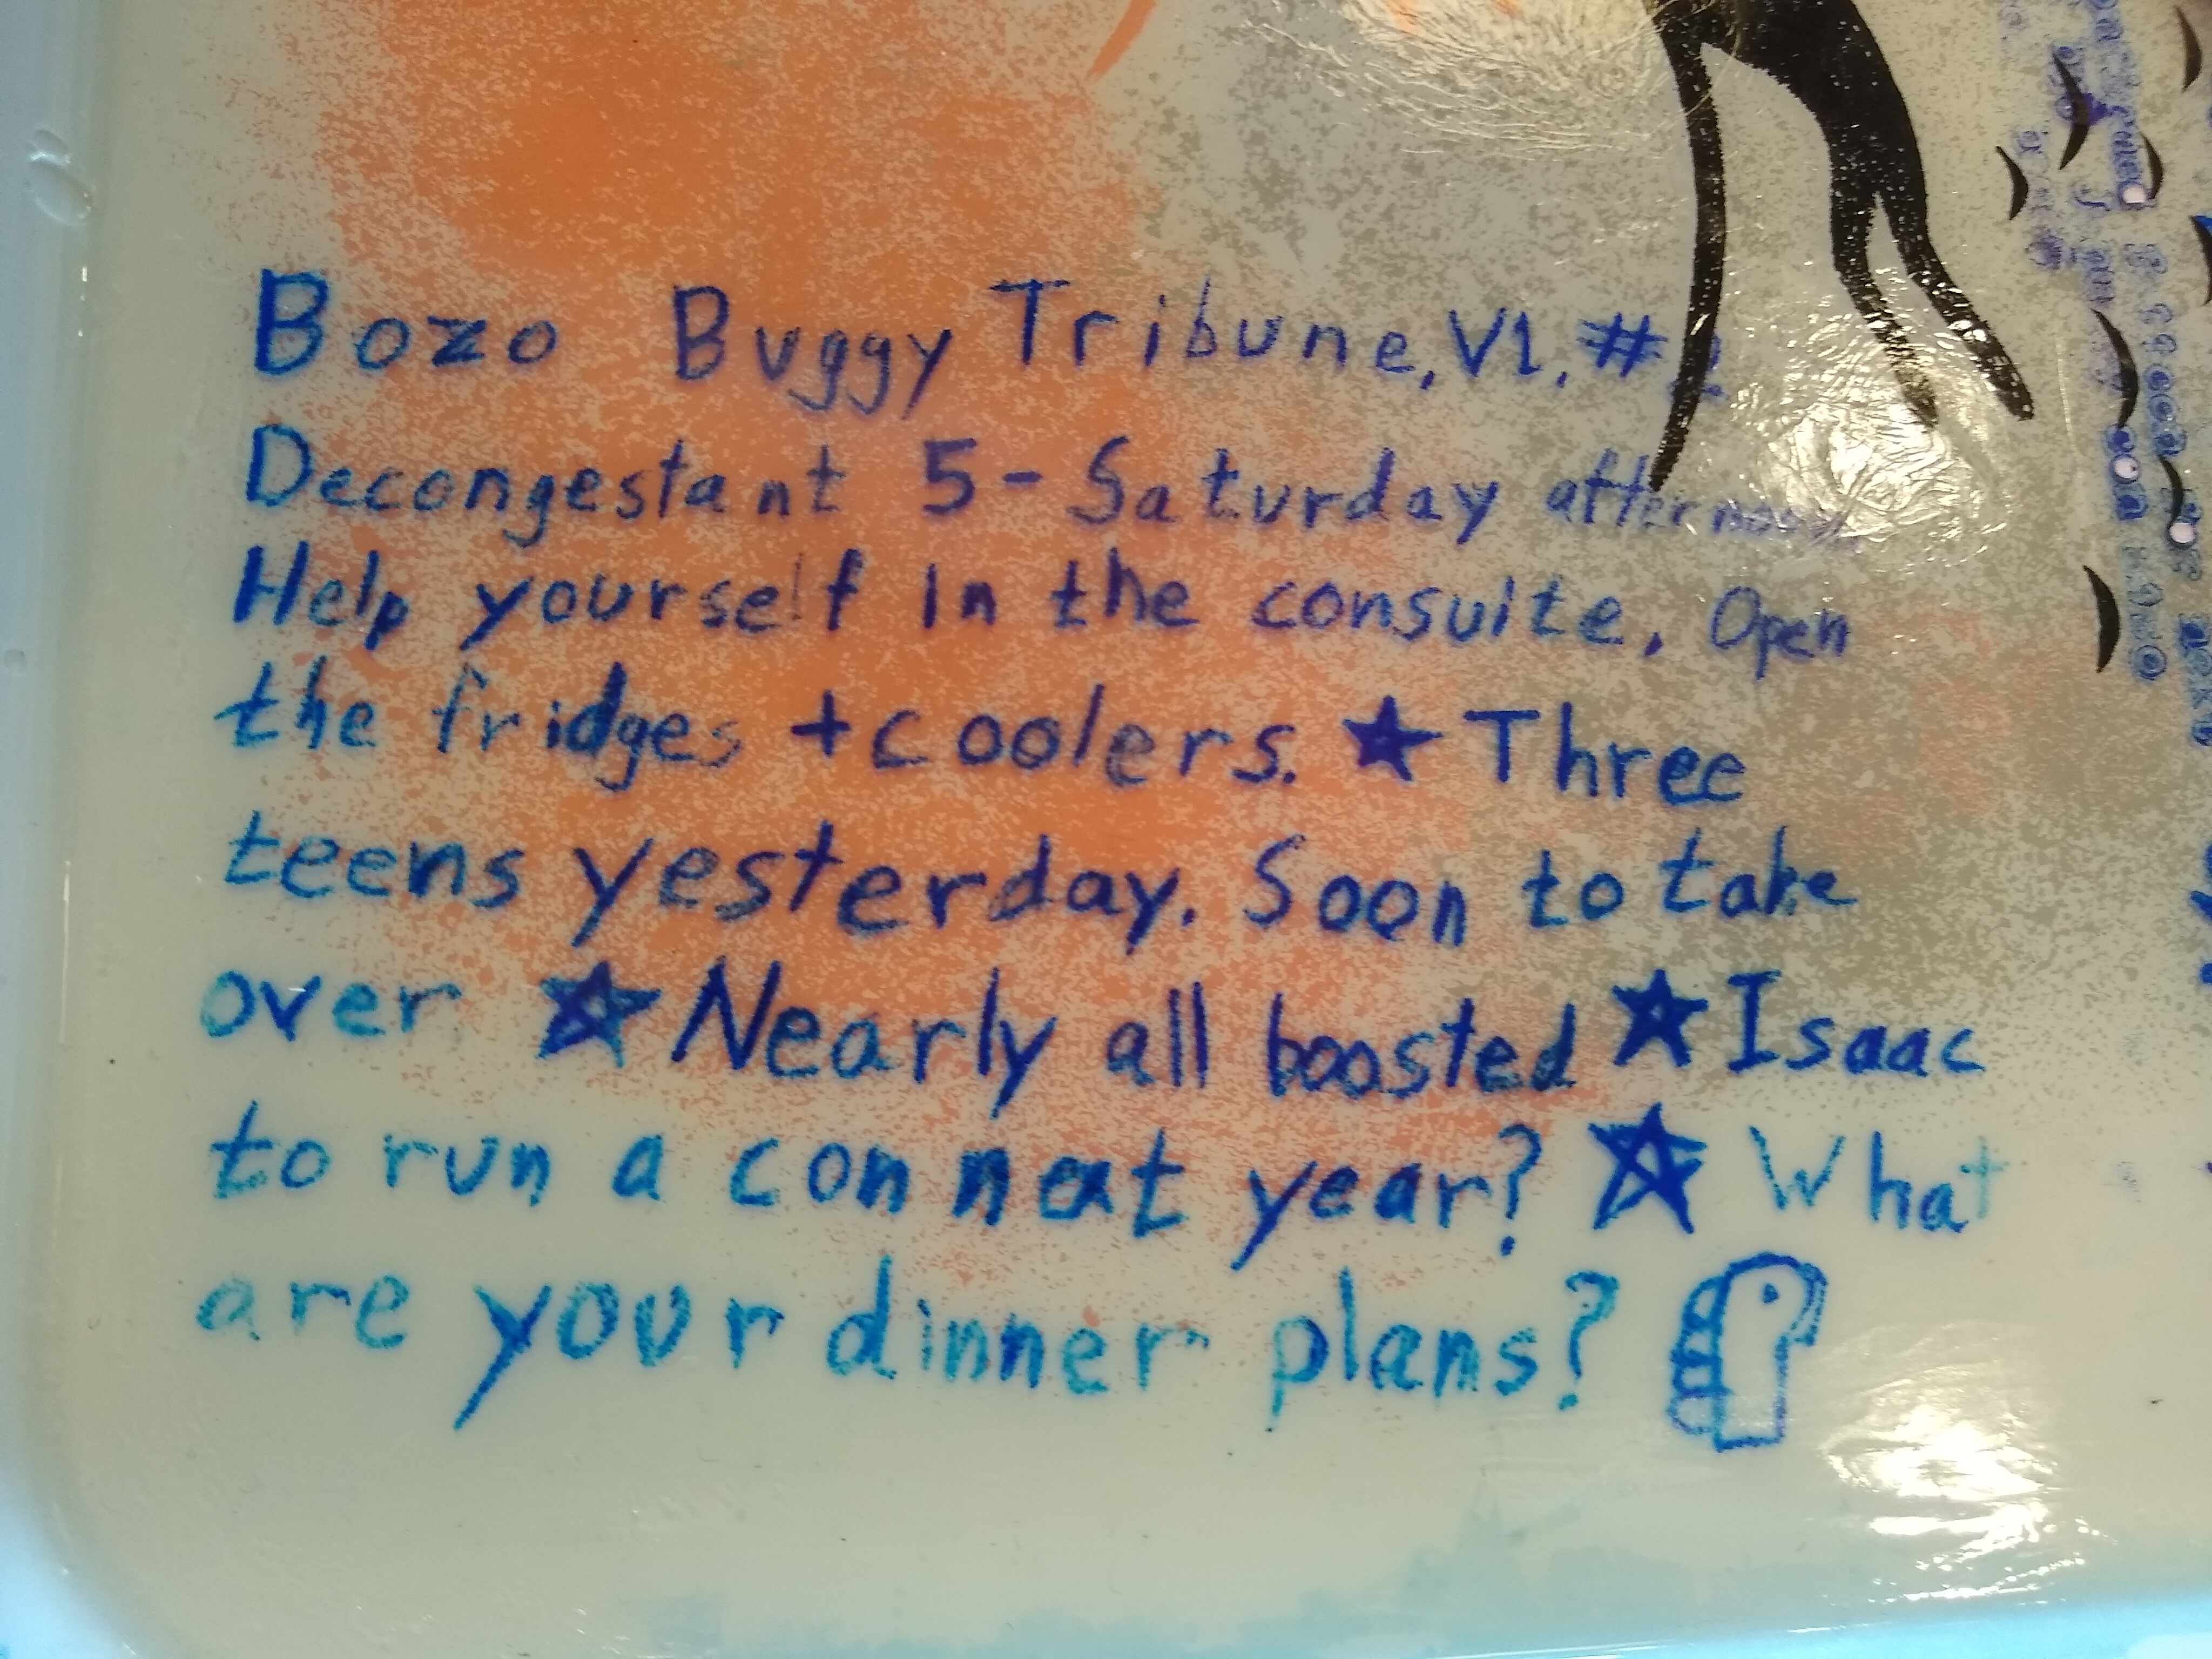 Bozo Buggy Tribune, V1, #2
Decongestant 5 - Saturday afternoon
Help yourself in the consuite, Open
the fridges + coolers. ★ Three
teens yesterday. Soon to take
over ★ Nearly all boosted ★ Isaac
to run a con next year? ★ What
are your dinner plans?